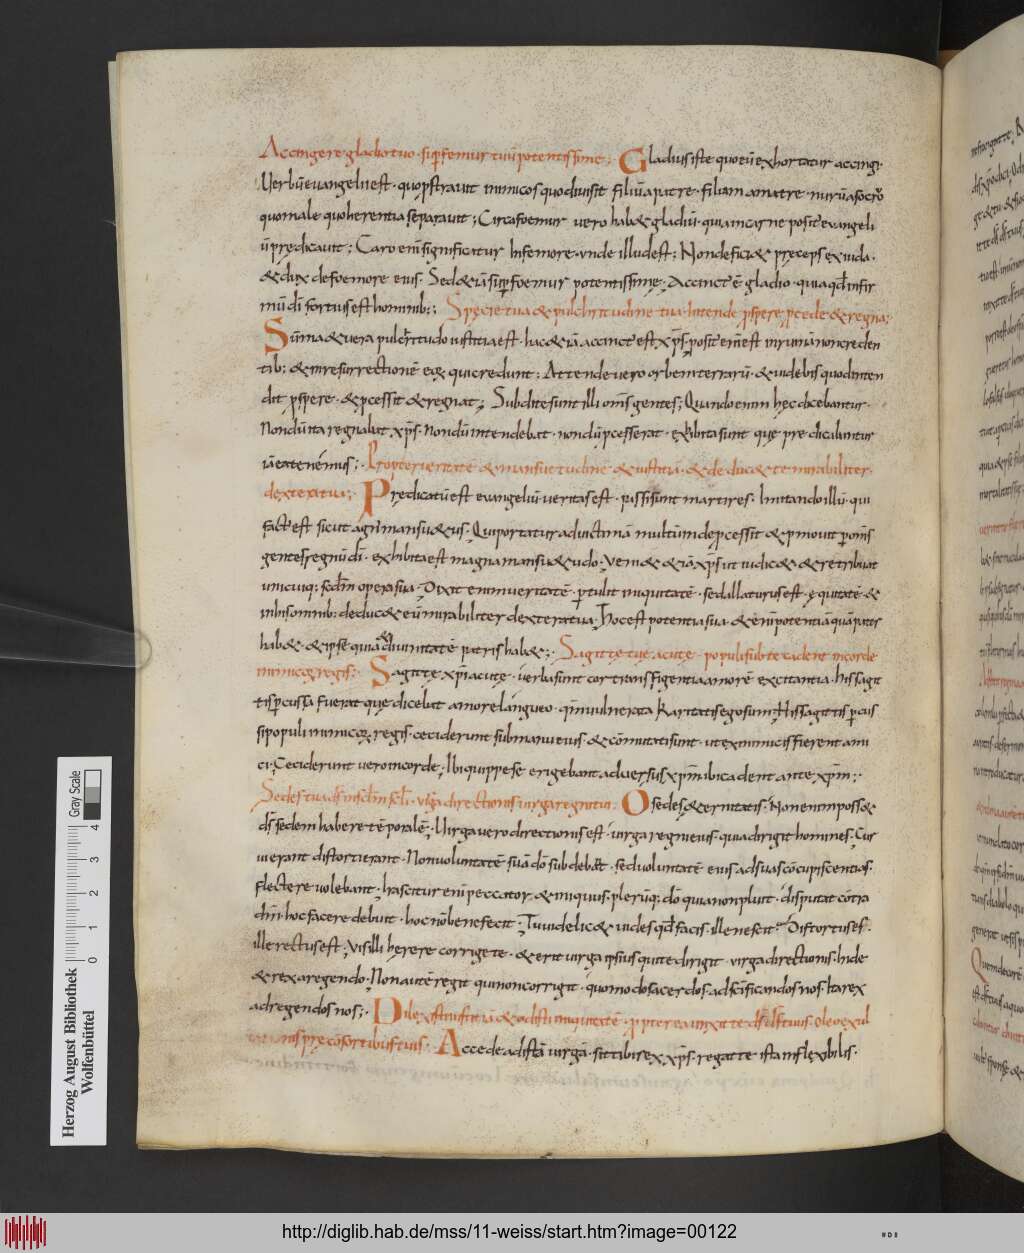 Accingere gladio tuo · sup femur tuū potentissime ; Gladius iste quo eū exhortatur accingi ·
Uerbū euangelii est · quo pstrauit inimicos quo diuisit filiū a patre · filiam a matre · nurū a socro
quo male quo herentia separauit ; Circa foemur uero hab& gladiū · quia in carne posit' euangeli
ū prędicauit ; Caro enī significatur In femore · unde illud est ; Non defici& pręceps ex iuda ·
& dux de foemore eius · Sed & iā sup foemur potentissimę · Accinct' ē gladio · quia qd infir
mū dī fortius est hominib: ; Specie tua & pulchritudine tua · Intende pspere pcede & regna ;
Summa & uera pulchritudo iustitia est · hac & iā accinct' est xp̄s · posit' eni est in ruinā non creden
tib: & in resurrectionē eoꝝ qui credunt ; Attende uero orbem terrarū · & uidebis quod Inten
dit pspere · & pcessit & regnat ; Subdite sunt illi om̄s gentes ; Quando enim hęc dicebantur ·
Nondū ita regnabat xp̄s · nondū intendebat · nondū pcesserat · exhibita sunt quę predicabantur
iā ea tenemus ; Propter ueritatē & mansuetudinē & iustitiā · & deduc& te mirabiliter ·
dextera tua ; Predicatū est euangeliū ueritas est · passi sunt martires · Imitando illū · qui
fact' est sicut agn' mansu&us · Qui portatur ad uictimā multū inde pcessit & pmouit p om̄s
gentes regnū dī · exhibita est magna mansu&udo ; Veni& & iā xp̄s ut iudic& & retribuat
unicuiq: scdm opera sua · Dixit enim ueritatē · ptulit iniquitatē · sed allaturus est ęquitatē · &
in his omnib: deduc& eū mirabiliter dextera tua · Hoc est potentia sua · & enī potentiā quā pater
hab& · & ipse quia & diuinitatē patris hab& ; Sagitte tuę acutę · populi sub te cadent in corde
inimicoꝝ regis ; Sagittę xp̄i acutę · uerba sunt cor transfigentia amorē excitantia · his sagit
tis pcussa fuerat quę dicebat amore langueo · qm uulnerata karitatis ego sum · His sagittis pcus
si populi inimicoꝝ regis · ceciderunt sub manu eius · & cōmutati sunt · ut ex inimicis fierent ami
ci ; Ceciderunt uero in corde · Ibi quippe se erigebant aduersus xp̄m ibi cadent ante xp̄m ;
Sedes tua ds in sclm scli · uirga directionis uirga regni tui · O sedes &ernitatis · Non enim poss&
ds sedem habere tēporalē ; Uirga uero directionis est · uirga regni eius · quia dirigit homines · Cur
ui erant distorti erant · Non uoluntatē suā dō subdebāt · sed uoluntatē eius ad suas cōcupiscentias
flectere uolebant · Irascitur enī peccator & iniquus · plerūq: dō quia non pluit · disputat cōtra
dm hoc facere debuit · hoc nō bene fecit · Tu uidelic& uides qd facis · ille nescit · Distortus es ·
ille rectus est ; Vis illi herere corrige te · & erit uirga ipsius qui te dirigit · uirga directionis · Inde
& rex a regendo · Non autē regit qui non corrigit · quomodo sacerdos ad scificandos nos · Ita rex
ad regendos nos ; Dilexisti iustitiā & odisti iniquitatē · ppterea unxit te ds ds tuus · oleo exul
tationis prę cōsortibus tuis · Accede ad istā uirgā · sit tibi rex xp̄s · regat te · ista inflexibilis ·
Herzog August Bibliothek
Wolfenbüttel
0 1 2 3 4
Gray Scale
http://diglib.hab.de/mss/11-weiss/start.htm?image=00122